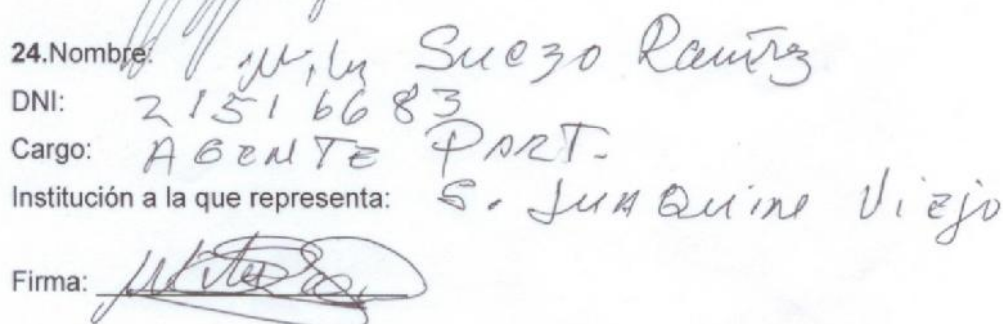 24.Nombre: Suezo Ramírez
DNI: 21516683
Cargo: AGENTE PART.
Institución a la que representa: S. JUAQUINE Viejo
Firma: